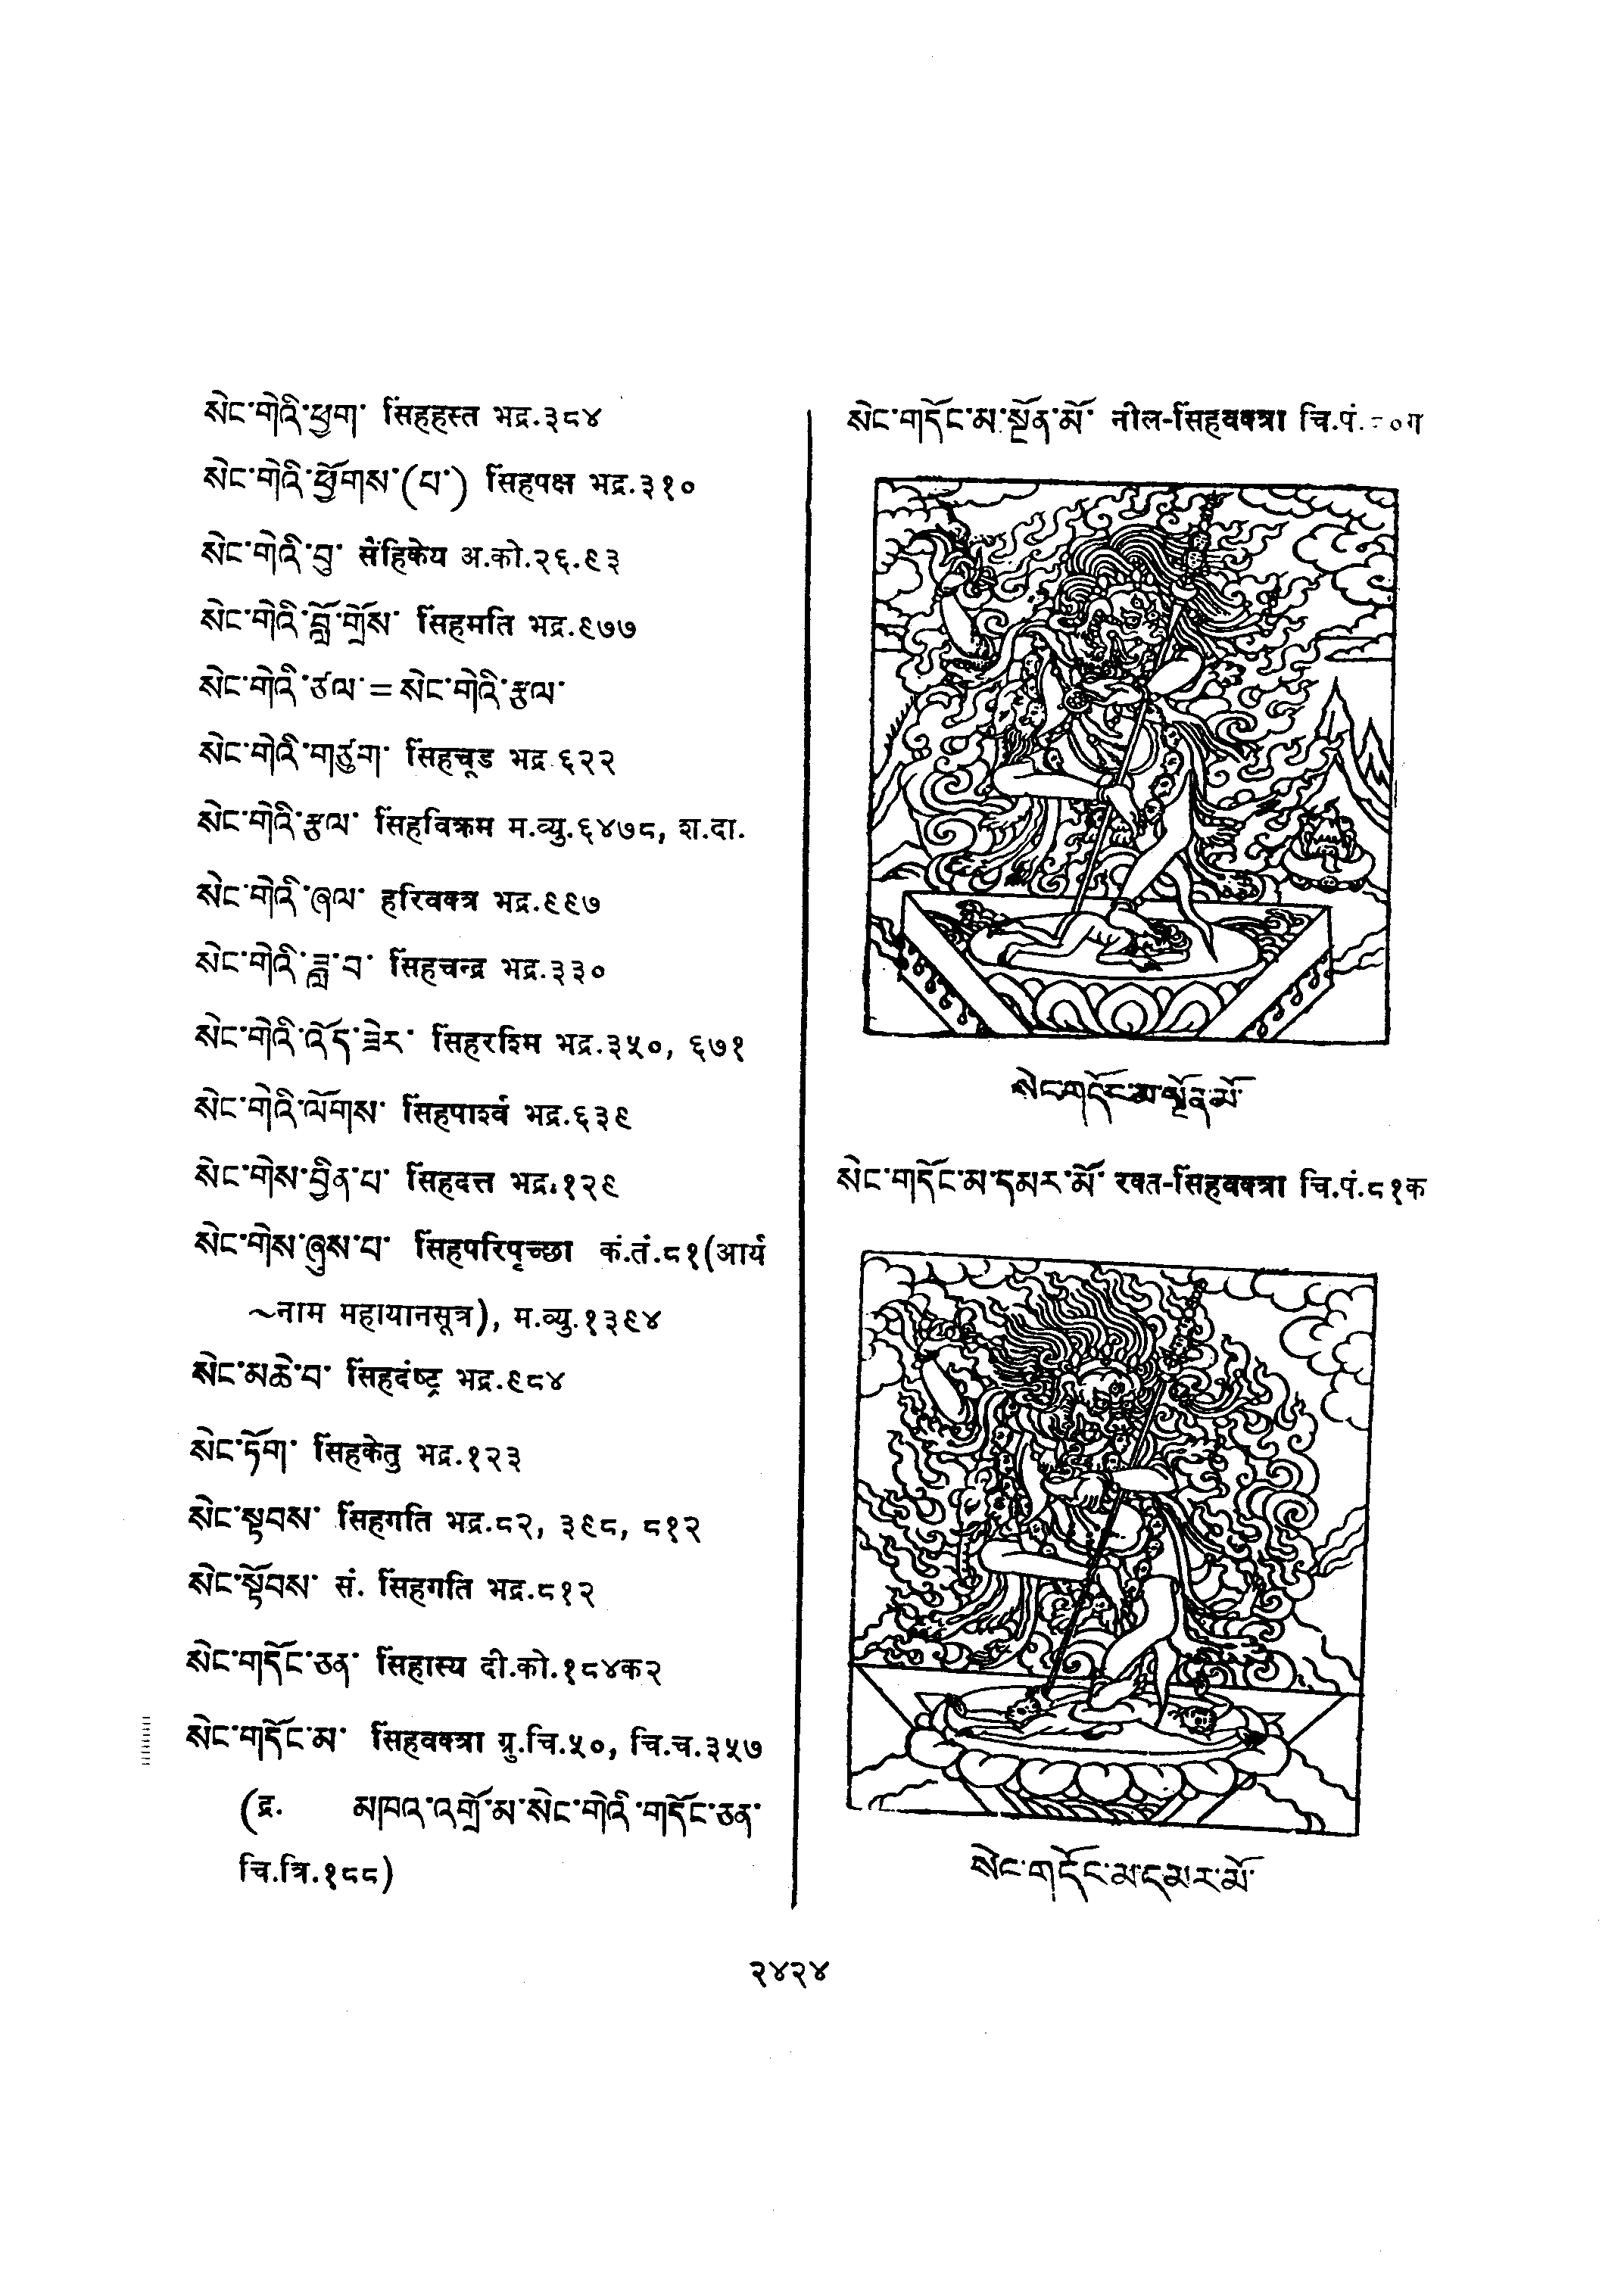 སེང་གེའི་ཕྱག་ सिंहहस्त भद्र.३८४
སེང་གེའི་ཕྱོགས་(པ་) सिंहपक्ष भद्र.३१०
སེང་གེའི་བུ་ सैंहिकेय अ.को.२६.९३
སེང་གེའི་བློ་གྲོས་ सिंहमति भद्र.९७७
སེང་གེའི་ཙལ་ = སེང་གེའི་རྩལ་
སེང་གེའི་གཙུག་ सिंहचूड भद्र.६२२
སེང་གེའི་རྩལ་ सिंहविक्रम म.व्यु.६४७८, श.दा.
སེང་གེའི་ཞལ་ हरिवक्त्र भद्र.९९७
སེང་གེའི་ཟླ་བ་ सिंहचन्द्र भद्र.३३०
སེང་གེའི་འོད་ཟེར་ सिंहरश्मि भद्र.३५०, ६७१
སེང་གེའི་ལོགས་ सिंहपार्श्व भद्र.६३९
སེང་གེས་བྱིན་པ་ सिंहदत्त भद्र.१२९
སེང་གེས་ཞུས་པ་ सिंहपरिपृच्छा कं.तं.८१(आर्य
~नाम महायानसूत्र), म.व्यु.१३९४
སེང་མཆེ་བ་ सिंहदंष्ट्र भद्र.९८४
སེང་ཏོག་ सिंहकेतु भद्र.१२३
སེང་སྟབས་ सिंहगति भद्र.८२, ३९८, ८१२
སེང་སྟོབས་ सं. सिंहगति भद्र.८१२
སེང་གདོང་ཅན་ सिंहास्य दी.को.१८४क२
སེང་གདོང་མ་ सिंहवक्त्रा ग्रु.चि.५०, चि.च.३५७
(द्र. མཁའ་འགྲོ་མ་སེང་གེའི་གདོང་ཅན་
चि.त्रि.१८८)
སེང་གདོང་མ་སྔོན་མོ་ नील-सिंहवक्त्रा चि.पं.
སེང་གདོང་མ་སྔོན་མོ་
སེང་གདོང་མ་དམར་མོ་ रक्त-सिंहवक्त्रा चि.पं.८१क
སེང་གདོང་མ་དམར་མོ་
२४२४